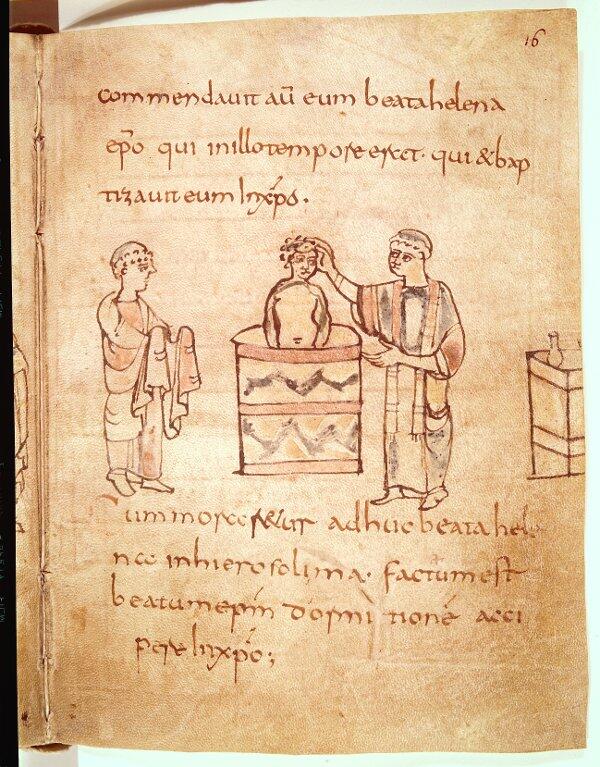 16
commendavit aū eum beata helena
ep̄o qui in illo tempore erat. qui & bap
tizavit eum In xp̄o.
um moraretur adhuc beata hele
na in hierosolima. factum est
beatum ep̄m dormitionē acci
pere In xp̄o;